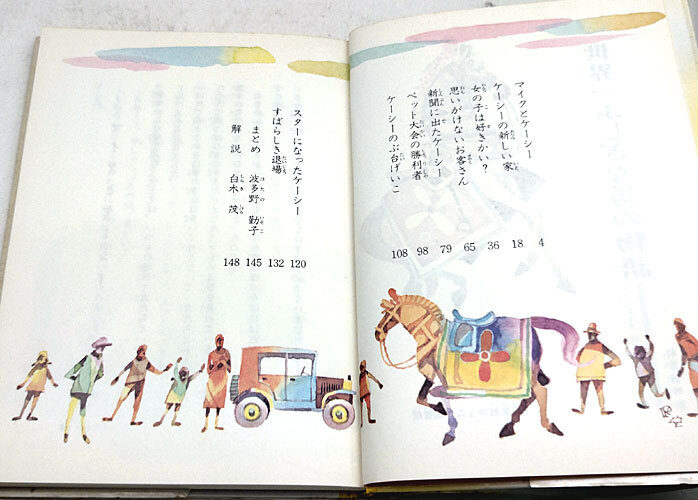 マイクとケーシー 4
ケーシーの新しい家 18
女の子は好きかい? 36
思いがけないお客さん 65
新聞に出たケーシー 79
ペット大会の勝利者 98
ケーシーのぶ台げいこ 108
スターになったケーシー 120
すばらしき退場 132
まとめ 波多野 勤子 145
解説 白木 茂 148